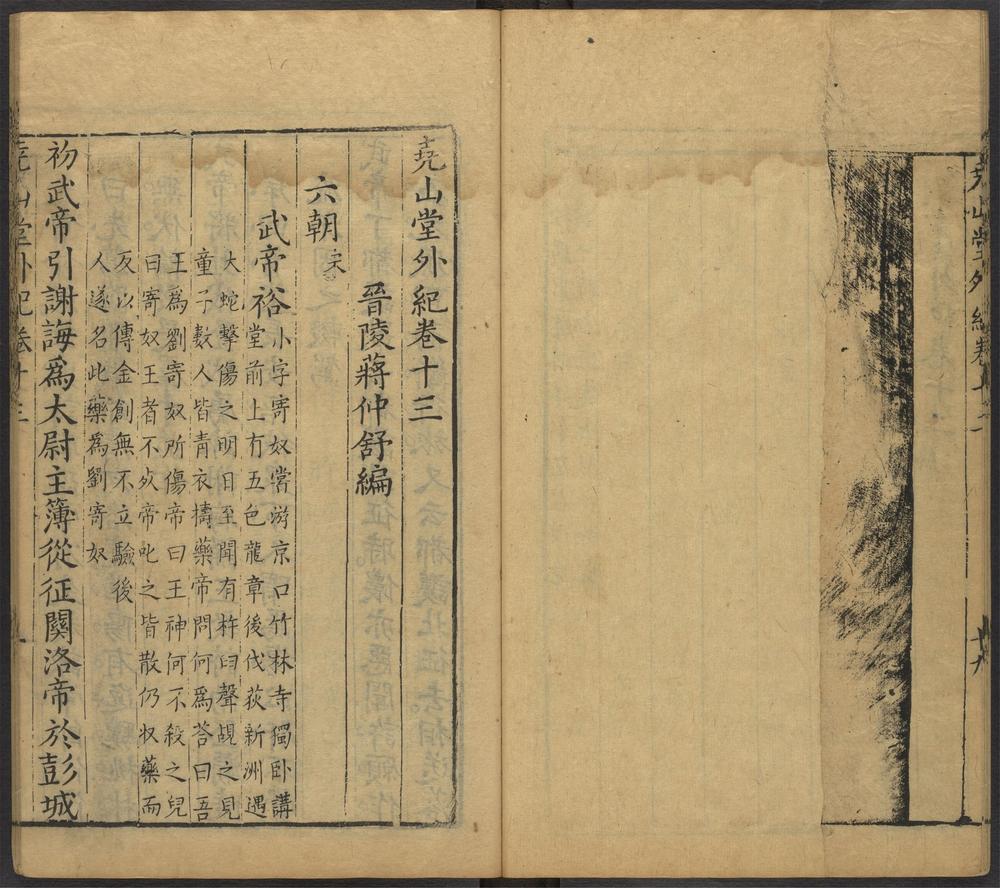 堯山堂外紀卷十二
十九
堯山堂外紀卷十三
晉陵蔣仲舒編
六朝宋
武帝裕
小字寄奴嘗游京口竹林寺獨臥講
堂前上有五色龍章後伐荻新洲遇
大蛇擊傷之明日至聞有杵臼聲覘之見
童子數人皆青衣擣藥帝問何爲荅曰吾
王爲劉寄奴所傷帝曰王神何不殺之兒
曰寄奴王者不死帝叱之皆散仍収藥而
反以傳金創無不立驗後
人遂名此藥爲劉寄奴
初武帝引謝誨爲太尉主簿從征關洛帝於彭城
堯山堂外紀卷十三
一